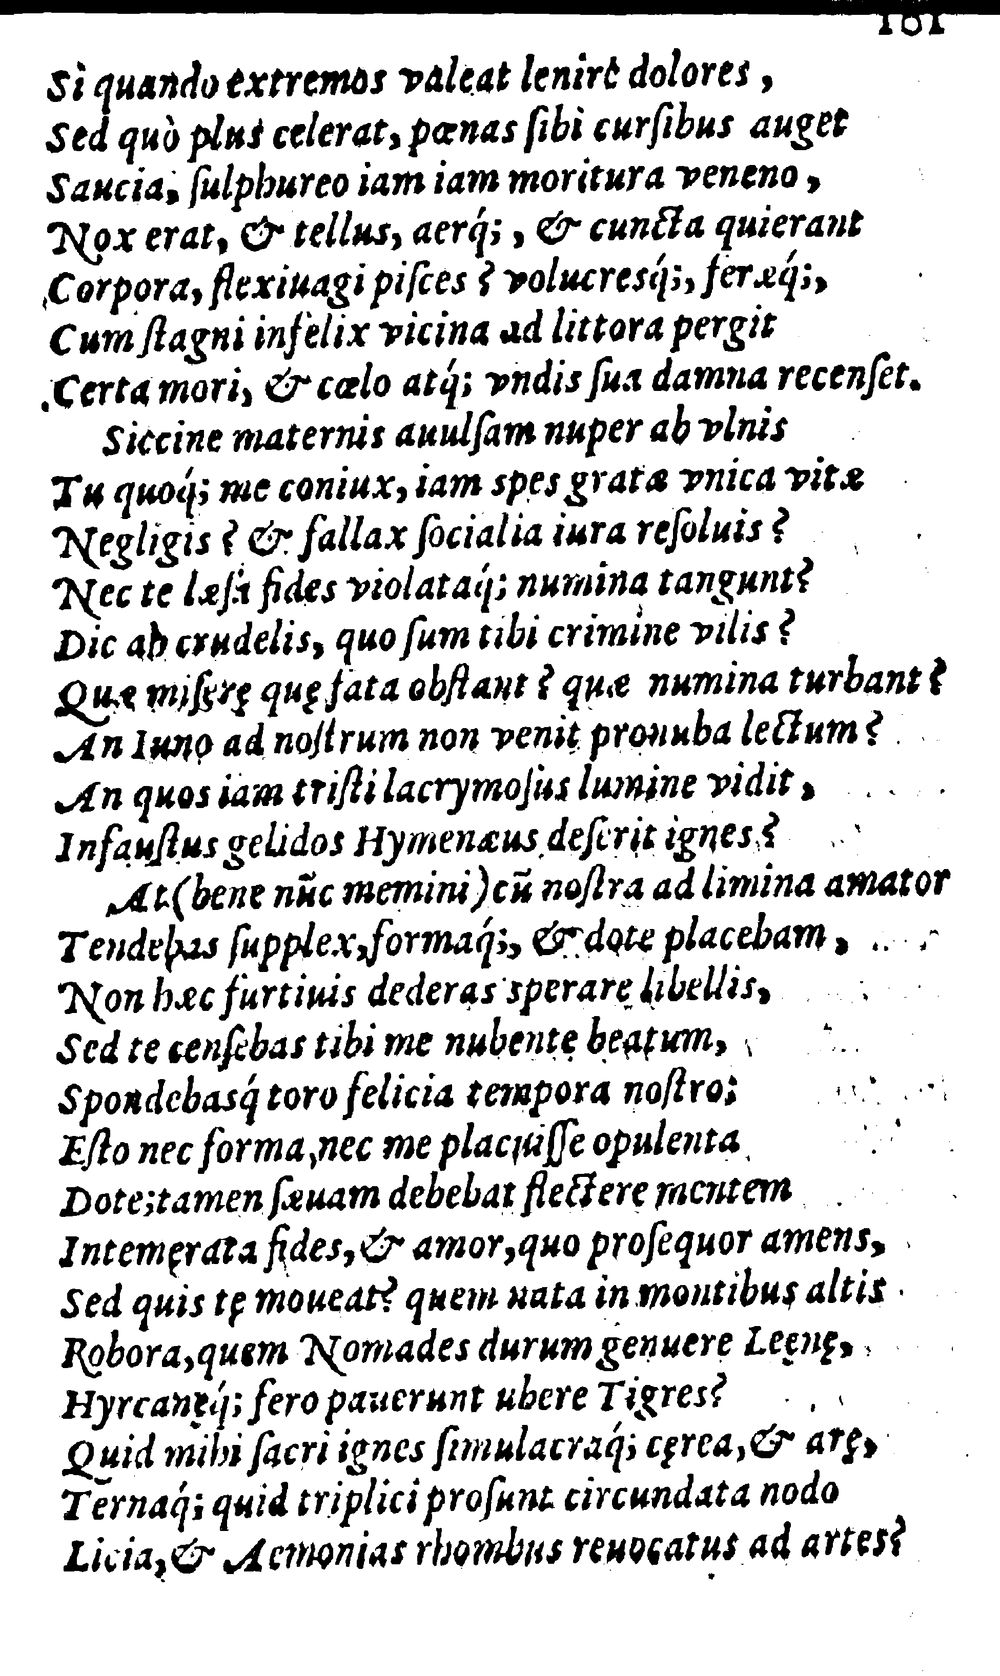 181
Sì quando extremos valeat lenire dolores ,
Sed quò plus celerat, pœnas ſibi curſibus auget
Saucia, ſulphureo iam iam moritura veneno ,
Nox erat, & tellus, aerq́; , & cuncta quierant
Corpora, flexiuagi piſces ? volucresq́;, feræq́;,
Cum ſtagni infelix vicina ad littora pergit
Certa mori, & cœlo atq́; vndis ſua damna recenſet.
Siccine maternis auulſam nuper ab vlnis
Tu quoq́; me coniux, iam spes gratæ vnica vitæ
Negligis ? & fallax ſocialia iura reſoluis ?
Nec te læſa fides violataq́; numina tangunt?
Dic ah crudelis, quo ſum tibi crimine vilis ?
Quæ miſerę quę fata obſtant ? quæ numina turbant ?
An Iuno ad noſtrum non venit pronuba lectum ?
An quos iam triſti lacrymoſius lumine vidit ,
Infauſtus gelidos Hymenæus deſerit ignes ?
At (bene nūc memini) cū noſtra ad limina amator
Tendebas ſupplex, formaq́;, & dote placebam ,
Non hæc furtiuis dederas sperare libellis,
Sed te cenſebas tibi me nubente beatum,
Spondebasq́ toro felicia tempora noſtro;
Eſto nec forma, nec me placuiſſe opulenta
Dote; tamen ſæuam debebat flectere mentem
Intemerata fides, & amor, quo proſequor amens,
Sed quis tę moueat? quem nata in montibus altis
Robora, quem Nomades durum genuere Leęnę,
Hyrcanęq́; fero pauerunt ubere Tigres?
Quid mihi ſacri ignes ſimulacraq́; cęrea, & arę,
Ternaq́; quid triplici proſunt circundata nodo
Licia, & Aemonias rhombus reuocatus ad artes?